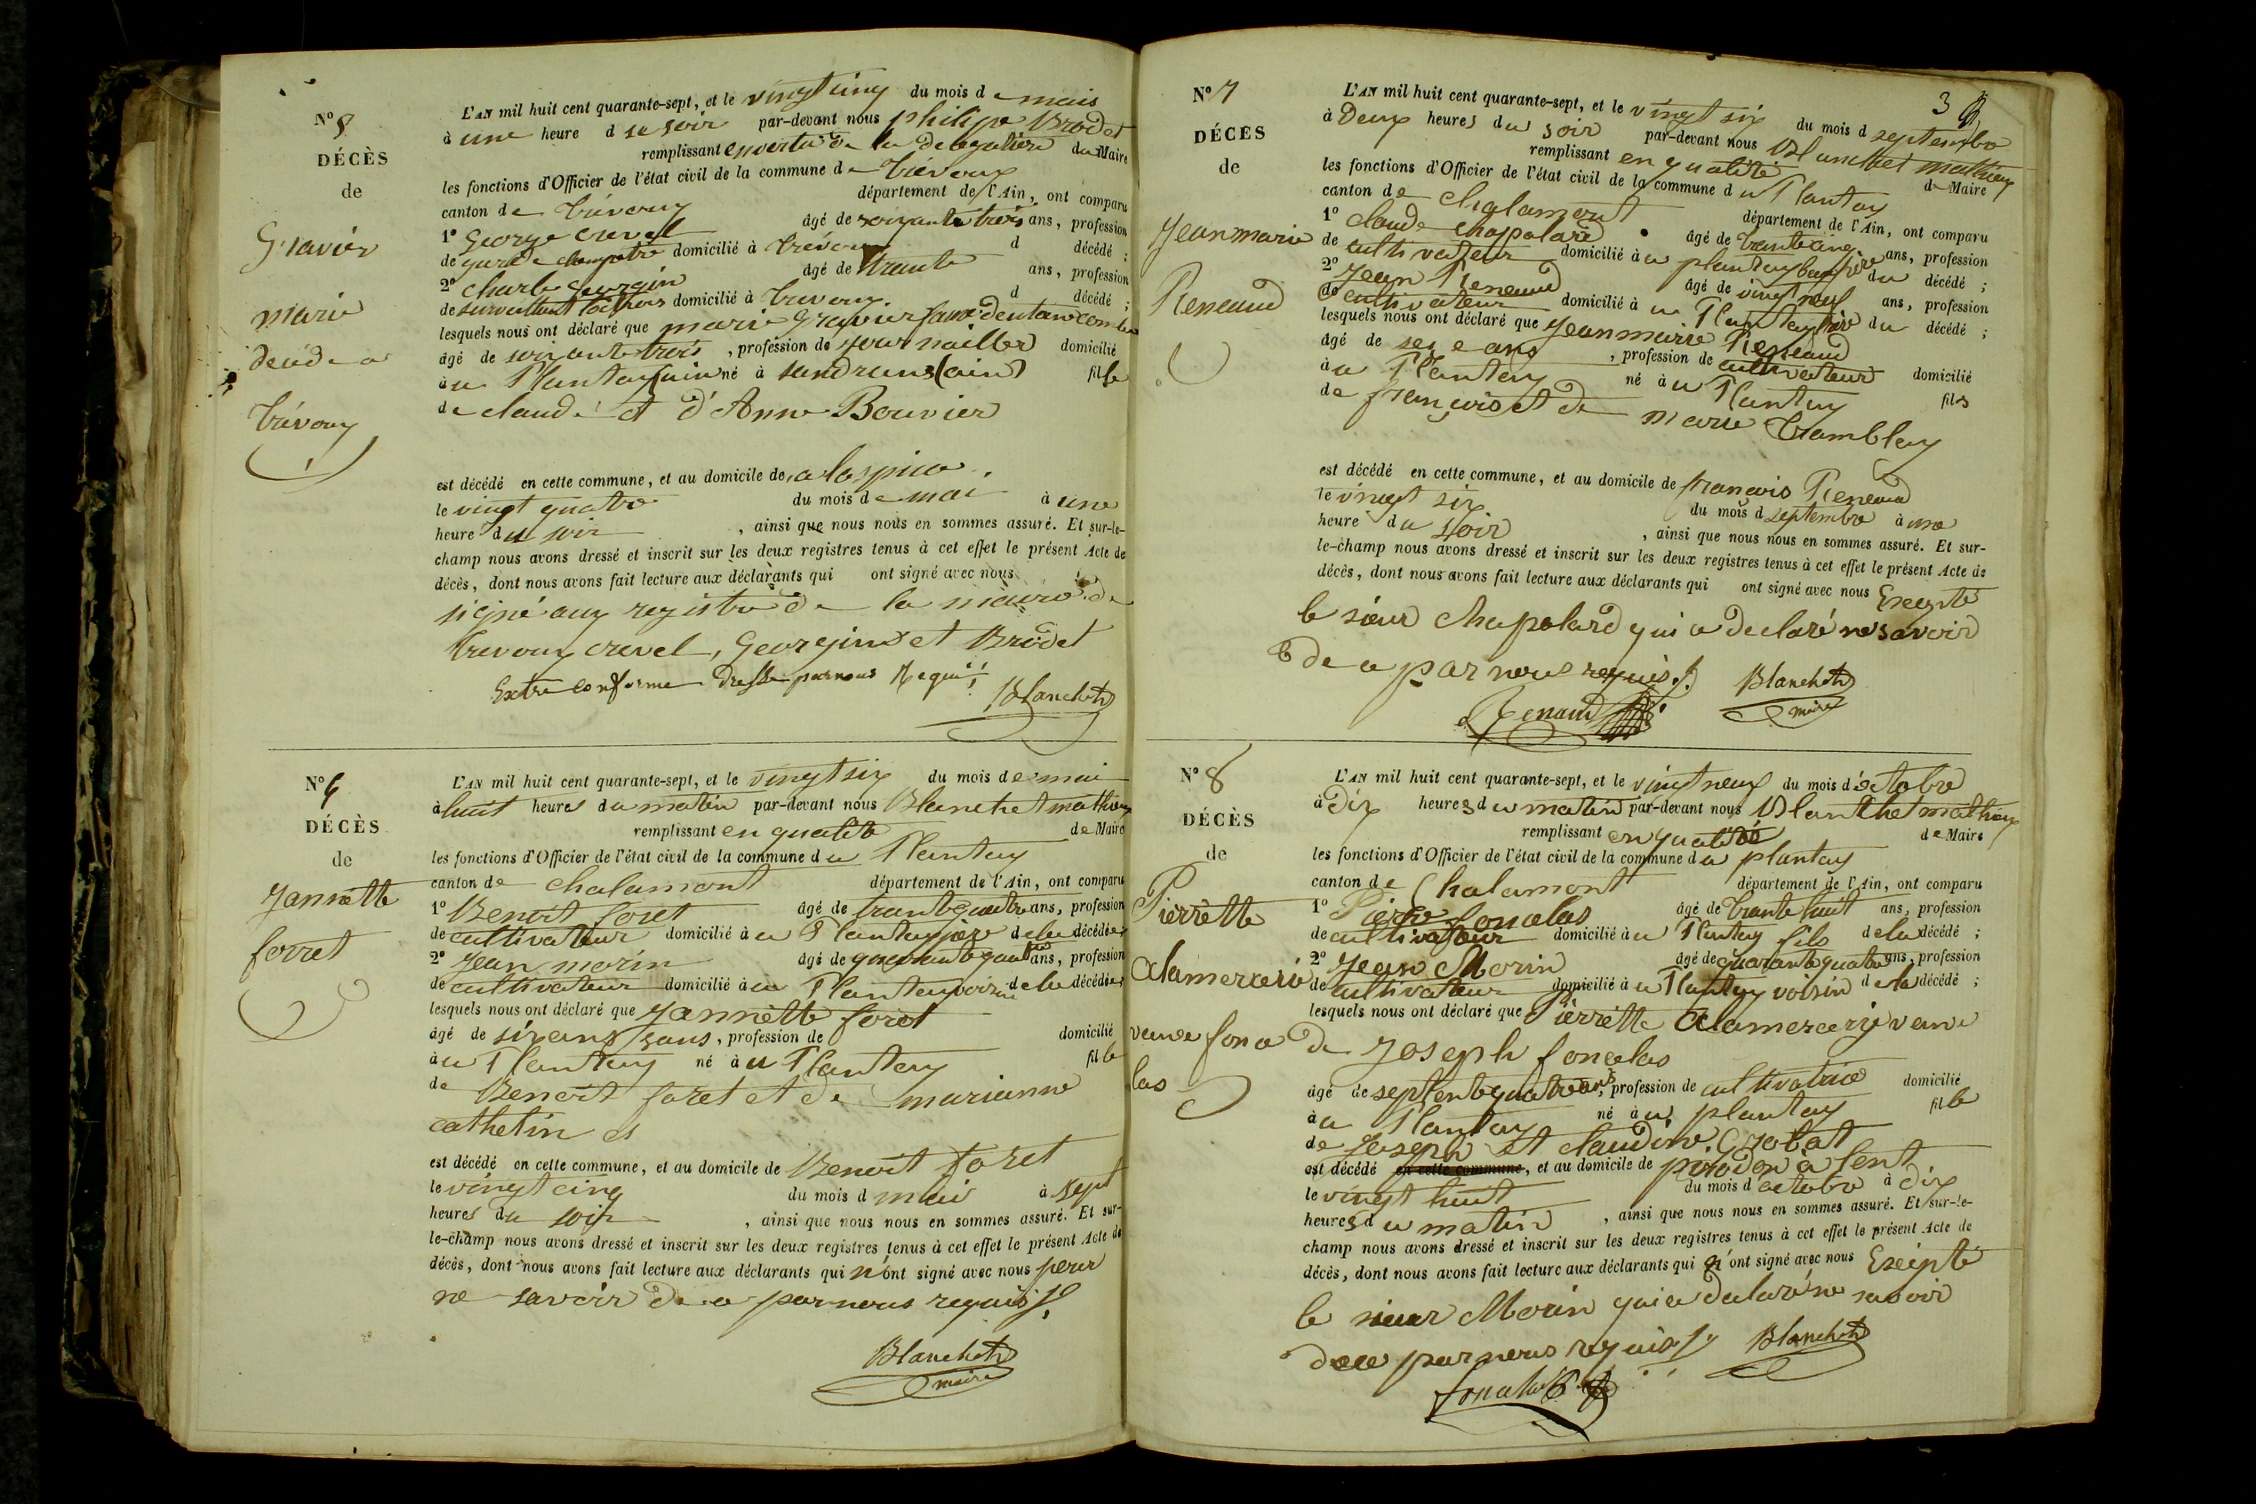 N° 5
DÉCÈS
de
Gravier
marie
décédé a
Trévoux
L'AN mil huit cent quarante-sept, et le vingt cinq du mois de mais
à une heure d su soir par-devant nous philipe Brodet
remplissant en vertu de la delegation du Maire
les fonctions d'Officier de l'état civil de la commune de Trévoux
canton de Trévoux département de l'Ain, ont comparu
1° George crevel âgé de soixante trois ans, profession
de garde champetre domicilié à Trévoux d décédé ;
2° charle Georgin âgé de trante ans, profession
de surveillant domicilié à Trevoux. d décédé ;
lesquels nous ont déclaré que marie Gravier
âgé de soixante trois, profession de journailler domicilié
à u Plantay (ain né à sandrans (ain) fille
de claude et d'Anne Bouvier
est décédé en cette commune, et au domicile de a lospice.
le vingt quatre du mois de mai à une
heure du soir, ainsi que nous nous en sommes assuré. Et sur-le-
champ nous avons dressé et inscrit sur les deux registres tenus à cet effet le présent Acte de
décès, dont nous avons fait lecture aux déclarants qui ont signé avec nous
signé aux registre de la mairie de
trevoux crevel, Georgin et Brodet
Extre conforme Dresse par nous Requi
Blanchet
N° 6
DÉCÈS
de
Jannette
forret
L'AN mil huit cent quarante-sept, et le vingt six du mois de mai
à huit heures du matin par-devant nous Blanchet mathieu
remplissant en qualité de Maire
les fonctions d'Officier de l'état civil de la commune du Plantay
canton de chalamont département de l'Ain, ont comparu
1° Benoit foret âgé de trante quatre ans, profession
de cultivateur domicilié à u Plantay père de la décédée
2° Jean morin âgé de quarante quatre ans, profession
de cultivateur domicilié à u Plantay voisin de la décédée
lesquels nous ont déclaré que Jannette foret
âgé de six ans sans, profession de domicilié
à u Plantay né à u Plantay fille
de Benoit foret et de marianne
cathelin
est décédé en cette commune, et au domicile de Benoit foret
le vingt cinq du mois d mai à sept
heures du soir, ainsi que nous nous en sommes assuré. Et sur-
le-champ nous avons dressé et inscrit sur les deux registres tenus à cet effet le présent Acte de
décès, dont nous avons fait lecture aux déclarants qui n'ont signé avec nous pour
ne savoir de a par nous requis
Blanchet
maire
3
N° 7
DÉCÈS
de
Jean marie
Reneaud
L'AN mil huit cent quarante-sept, et le vingt six du mois d septembre
à Deux heures du soir par-devant nous Blanchet mathieu
remplissant en qualité de Maire
les fonctions d'Officier de l'état civil de la commune du Plantay
canton de chalamont département de l'Ain, ont comparu
1° claude chapolard âgé de trante cinq ans, profession
de cultivateur domicilié à u plantay beaufrère du décédé ;
2° Jean Reneaud âgé de vingt neuf ans, profession
de cultivateur domicilié à u Plantay frère du décédé ;
lesquels nous ont déclaré que Jean marie Reneaud
âgé de seze ans, profession de cultivateur domicilié
à u Plantay né à u Plantay fils
de françois et de marie Tramblay
est décédé en cette commune, et au domicile de françois Reneaud
le vingt six du mois d septembre à une
heure du soir, ainsi que nous nous en sommes assuré. Et sur-
le-champ nous avons dressé et inscrit sur les deux registres tenus à cet effet le présent Acte de
décès, dont nous avons fait lecture aux déclarants qui ont signé avec nous Exepté
le sieur chapolard qui a declaré ne savoir
de a par nous requis.
Blanchet
maire
Renaud
N° 8
DÉCÈS
de
Pierrette
Alamercerie
veuve fona
las
L'AN mil huit cent quarante-sept, et le vingt neuf du mois d'octobre
à dix heures du matin par-devant nous Blanchet mathieu
remplissant en qualité de Maire
les fonctions d'Officier de l'état civil de la commune du plantay
canton de Chalamont département de l'Ain, ont comparu
1° Pierre fonalas âgé de trante huit ans, profession
de cultivateur domicilié à u Plantay fils de la décédé ;
2° Jean Morin âgé de quarante quatre ans, profession
de cultivateur domicilié à u Plantay voisin de la décédé ;
lesquels nous ont déclaré que Pierrette Alamercerie veuve
de Joseph fonalas
âgé de septente quatre ans, profession de cultivatrice domicilié
à u Plantay né à u plantay fille
de Joseph et claudine Gobat
est décédé en cette commune, et au domicile de à lent
le vingt huit du mois d'octobre à dix
heures du matin, ainsi que nous nous en sommes assuré. Et sur-le-
champ nous avons dressé et inscrit sur les deux registres tenus à cet effet le présent Acte de
décès, dont nous avons fait lecture aux déclarants qui n'ont signé avec nous Exepté
le sieur Morin qui a declaré ne savoir
de a par nous requis
Blanchet
fonalas